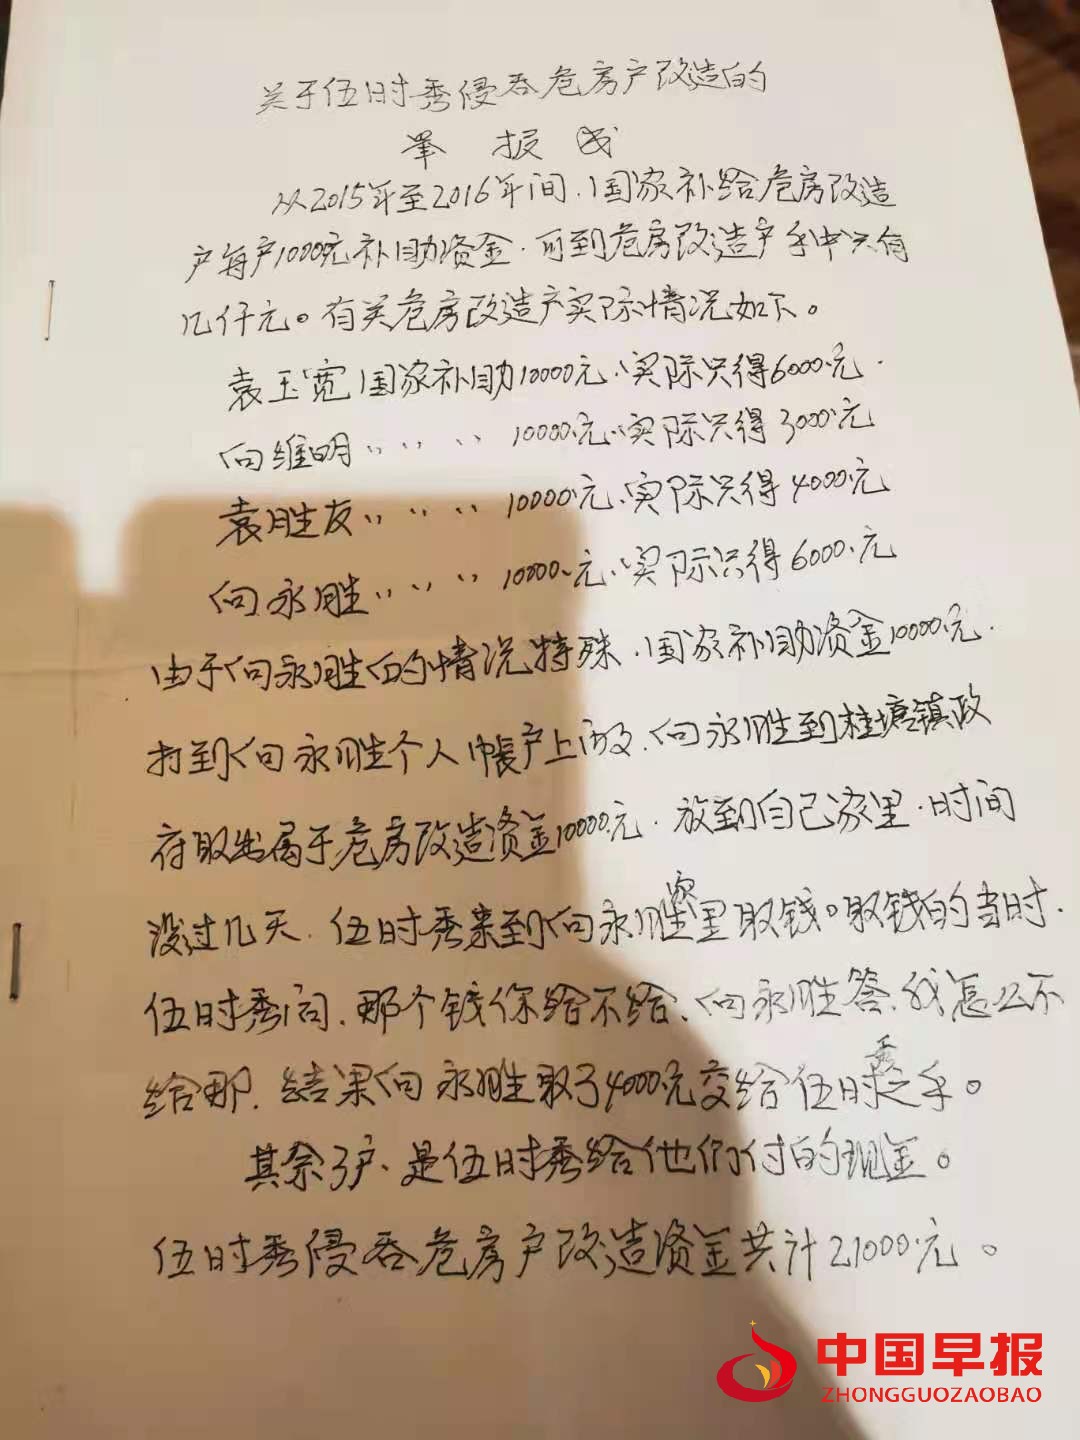 关于伍时秀侵吞危房户改造的
举报
从2015年至2016年间，国家补给危房改造
户每户10000元补助资金，可到危房改造户手中只有
几仟元。有关危房改造户实际情况如下。
袁玉宽国家补助10000元，实际只得6000元.
向维明〃〃〃10000元，实际只得3000元
袁胜友〃〃〃10000元，实际只得4000元
向永胜〃〃〃10000元，实际只得6000元
由于向永胜的情况特殊，国家补助资金10000元.
打到向永胜个人帐户上以及，向永胜到桂塘镇政
府取出属于危房改造资金10000元，放到自己家里，时间
没过几天，伍时秀来到向永胜家里取钱。取钱的当时，
伍时秀问，那个钱你给不给，向永胜答，我怎么不
给那，结果向永胜取了4000元交给伍时秀之手。
其余3户，是伍时秀给他们付的现金。
伍时秀侵吞危房户改造资金共计21000元。
中国早报
ZHONGGUOZAOBAO